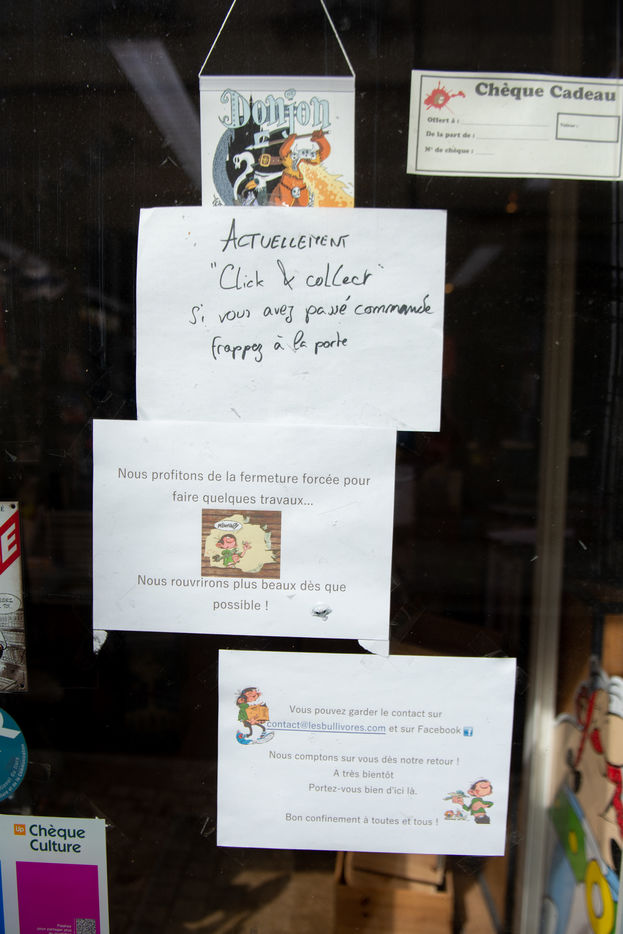 Donjon
Chèque Cadeau
Offert à :
Valeur :
De la part de :
N° de chèque :
ACTUELLEMENT
"Click & collect"
si vous avez passé commande
frappez à la porte
Nous profitons de la fermeture forcée pour
faire quelques travaux...
Nous rouvrirons plus beaux dès que
possible !
Vous pouvez garder le contact sur
contact@lesbullivores.com et sur Facebook
Nous comptons sur vous dès notre retour !
A très bientôt
Portez-vous bien d'ici là.
Bon confinement à toutes et tous !
E
Up Chèque
Culture